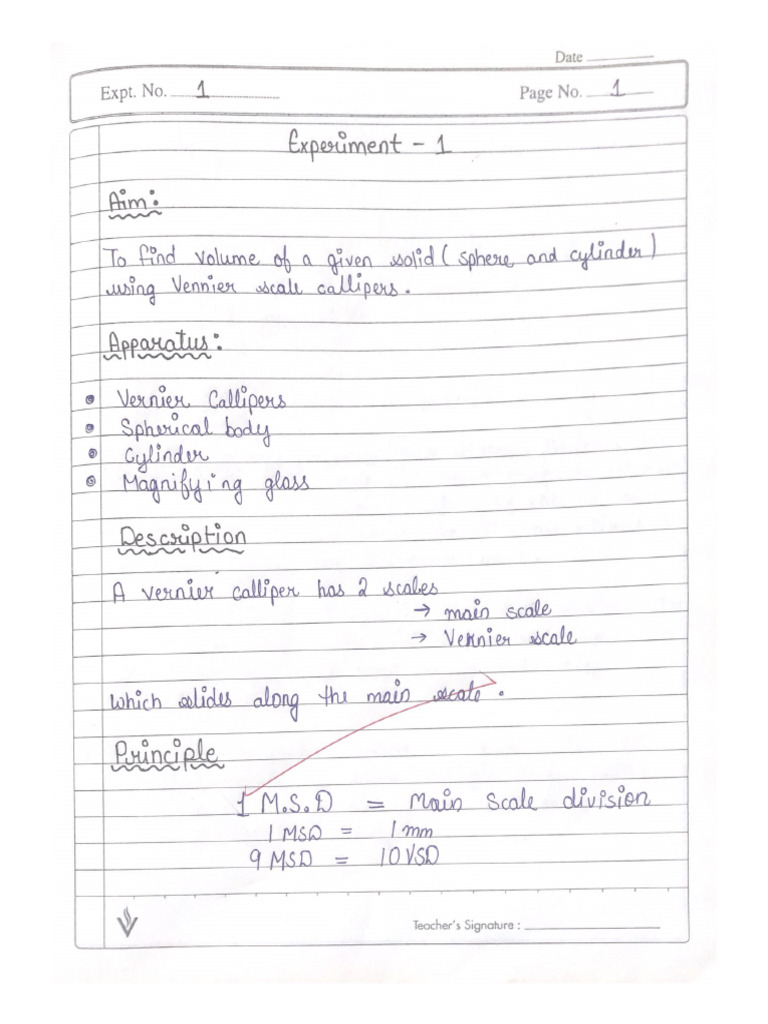 Date
Expt. No. 1
Page No. 1
Experiment - 1
Aim:
To find volume of a given solid ( sphere and cylinder )
using Vennier scale callipers.
Apparatus:
• Vernier Callipers
• Spherical body
• Cylinder
• Magnifying glass
Description
A vernier calliper has 2 scales
→ main scale
→ Vernier scale
which slides along the main scale.
Principle
1 M.S.D = Main Scale division
1 MSD = 1 mm
9 MSD = 10 VSD
Teacher's Signature :